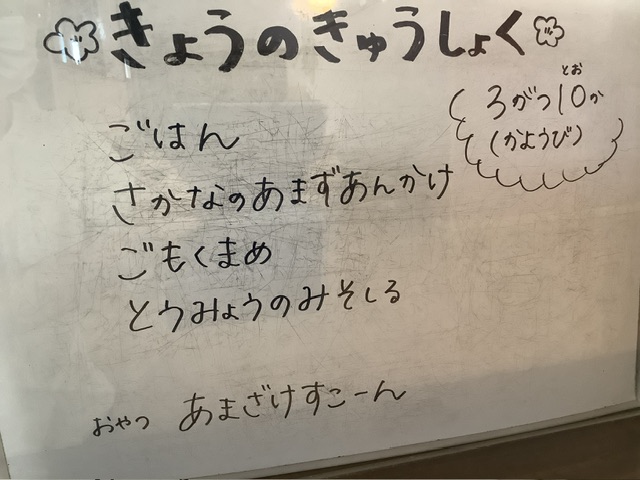 きょうのきゅうしょく
とお
3がつ10か
(かようび)
ごはん
さかなのあまずあんかけ
ごもくまめ
とうみょうのみそしる
おやつ あまざけすこーん